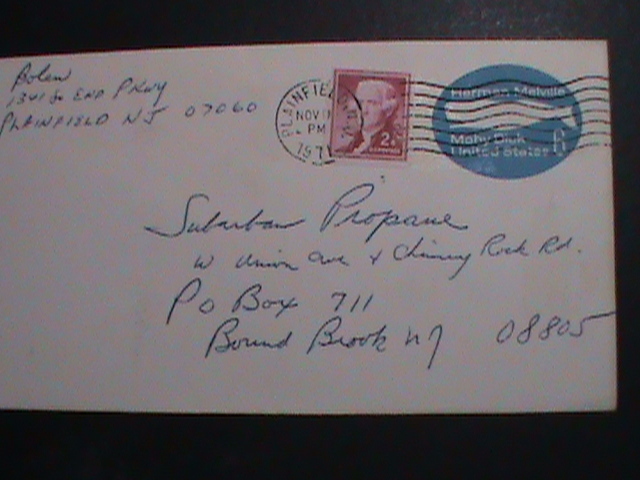 Bolen
1341 So End PKwy
PLAINFIELD NJ 07060
PLAINFIELD
NOV
PM
197
2¢
Herman Melville
Moby Dick
United States 6
Suburban Propane
W Union Ave & Chimney Rock Rd.
PO Box 711
Bound Brook NJ 08805